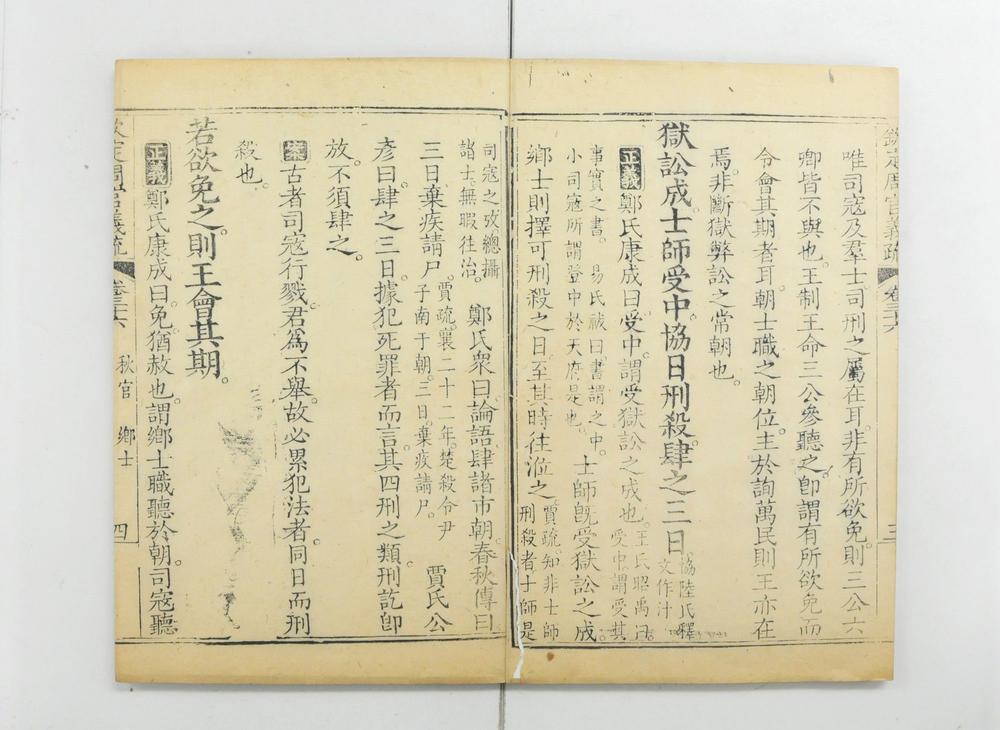 欽定周官義疏 卷三十六 三
唯司寇及羣士司刑之屬在耳。非有所欲免。則三公六
卿皆不與也。王制王命三公參聽之。卽謂有所欲免而
令會其期者耳。朝士職之朝位。主於詢萬民。則王亦在
焉。非斷獄弊訟之常朝也。
獄訟成。士師受中。協日刑殺。肆之三日。
協陸氏釋
文作汁
正義鄭氏康成曰。受中。謂受獄訟之成也。
王氏昭禹曰。
受中。謂受其
事實之書。 易氏祓曰。書謂之中。
小司寇所謂登中於天府是也。
士師旣受獄訟之成。
鄉士則擇可刑殺之日。至其時往涖之。
賈疏。知非士師
刑殺者。士師是
司寇之攷。總攝
諸士。無暇往治。
鄭氏衆曰。論語。肆諸市朝。春秋傳曰。
三日棄疾請尸。
賈疏。襄二十二年。楚殺令尹
子南于朝。三日。棄疾請尸。
賈氏公
彥曰。肆之三日。據犯死罪者而言。其四刑之類。刑訖卽
放。不須肆之。
案古者司寇行戮。君爲不舉。故必累犯法者。同日而刑
殺也。
若欲免之。則王會其期。
正義鄭氏康成曰。免。猶赦也。謂鄉士職聽於朝。司寇聽
周官義疏 卷三十六 秋官 鄉士 四